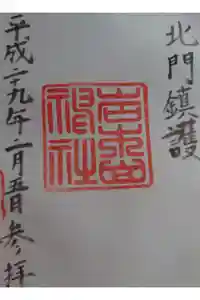 北門鎮護
神社
平成二十九年一月五日参拝